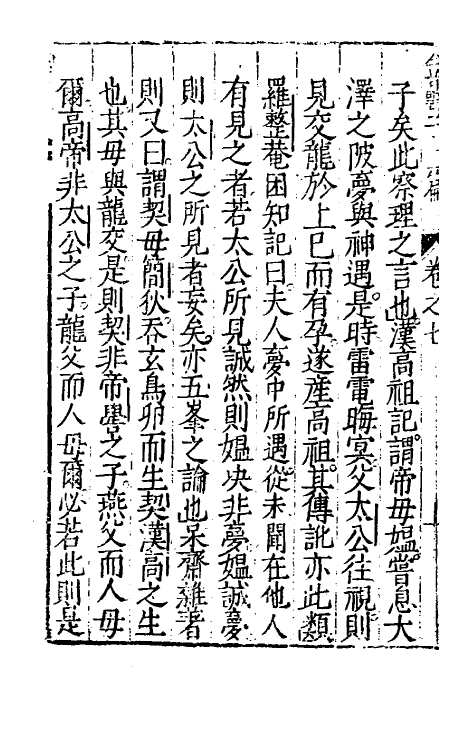 子矣此察理之言也漢高祖記謂帝母媼嘗息大
澤之陂夢與神遇是時雷電晦冥父太公往視則
見交龍於上巳而有孕遂產高祖其傳訛亦此類
羅整菴困知記曰夫人夢中所遇從未聞在他人
有見之者若太公所見誠然則媼决非夢媼誠夢
則太公之所見者妄矣亦五峯之論也呆齋雜著
則又曰謂契母簡狄吞玄鳥卵而生契漢高之生
也其母與龍交是則契非帝嚳之子燕父而人母
爾高帝非太公之子龍父而人母爾必若此則是
卷之七